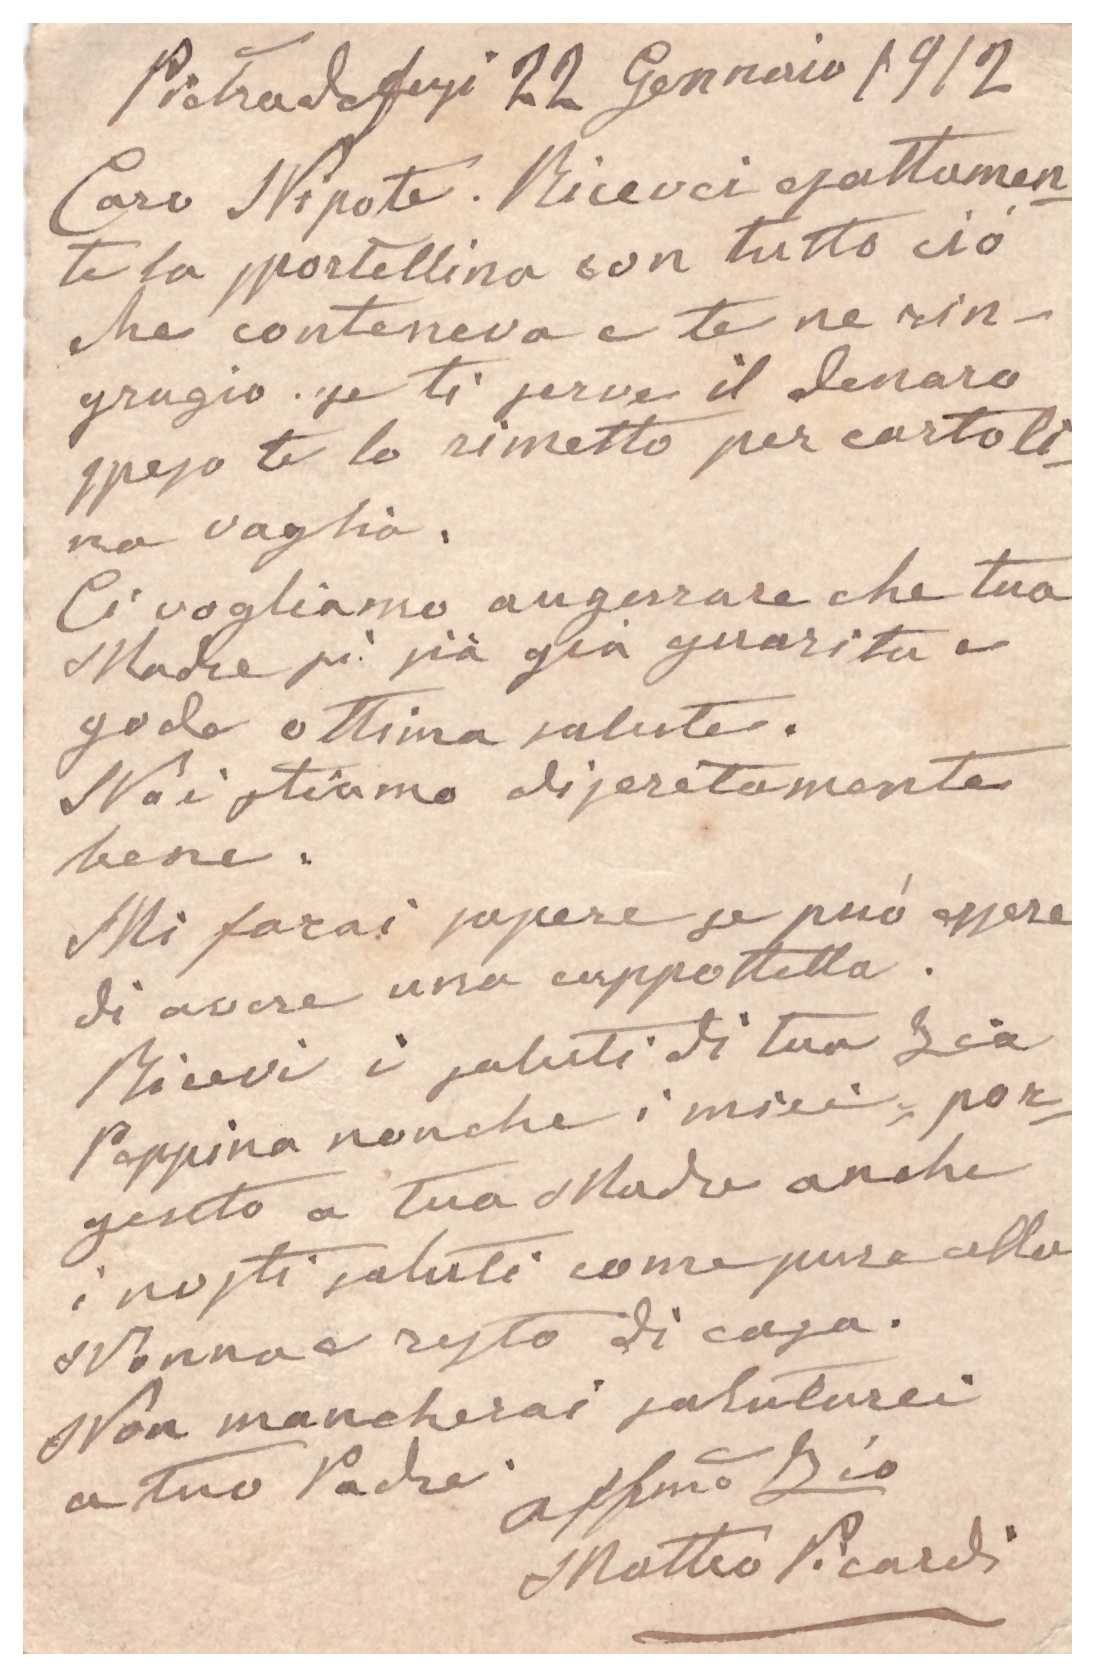 Pietradefusi 22 Gennaio 1912
Caro Nipote. Ricevei esattamen-
te la sportellina con tutto ció
che conteneva e te ne rin-
grazio. se ti serve il denaro
speso te lo rimetto per cartoli-
na vaglia.
Ci vogliamo augurare che tua
Madre si sià già guarita e
gode ottima salute.
Noi stiamo discretamente
bene.
Mi farai sapere se puó essere
di avere una cappottella.
Ricevi i saluti di tua Zia
Peppina nonche i miei, por-
gento a tua Madre anche
i nosti saluti come pure alla
Nonna e resto di casa.
Non mancherai salutarci
a tuo Padre.
affmo Zio
Matteo Picardi